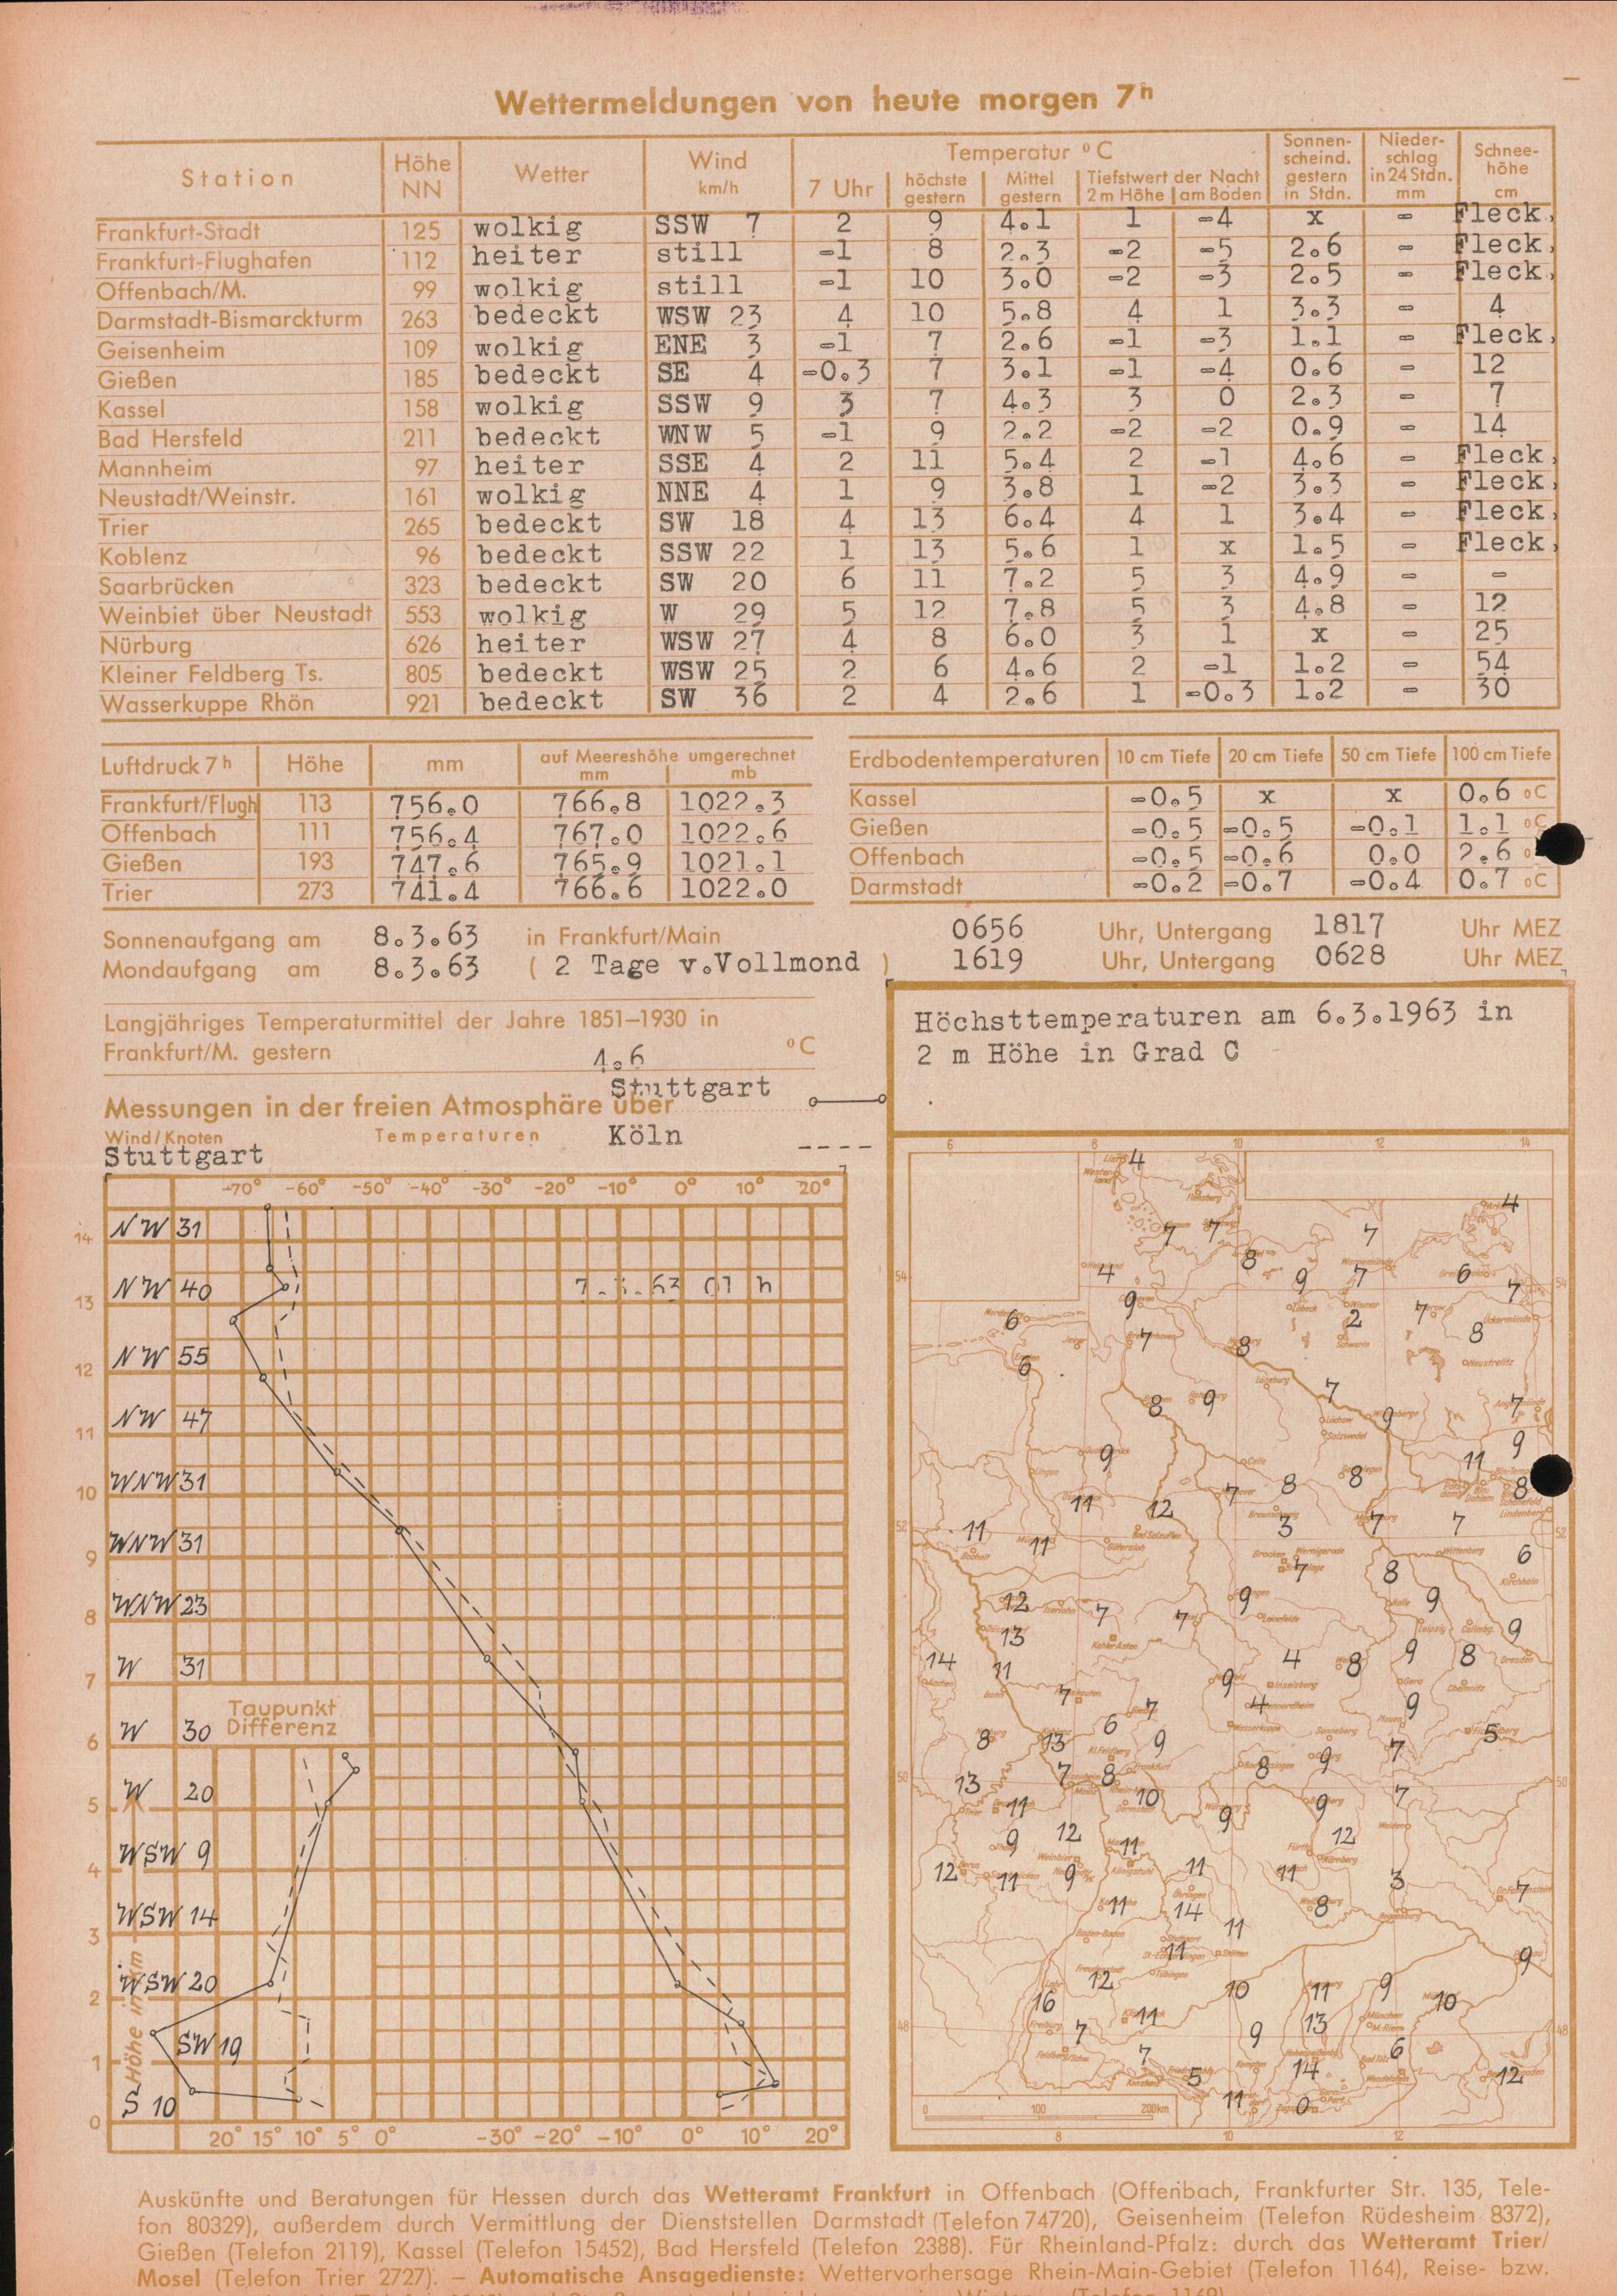 Wettermeldungen von heute morgen 7h
Station Höhe NN Wetter Wind km/h Temperatur °C Sonnen-scheind. gestern in Stdn. Nieder-schlag in 24 Stdn. mm Schnee-höhe cm
7 Uhr höchste gestern Mittel gestern Tiefstwert der Nacht 2 m Höhe am Boden
Frankfurt-Stadt 125 wolkig SSW 7 2 9 4.1 1 -4 x - Fleck.
Frankfurt-Flughafen 112 heiter still -1 8 2.3 -2 -5 2.6 - Fleck.
Offenbach/M. 99 wolkig still -1 10 3.0 -2 -3 2.5 - Fleck.
Darmstadt-Bismarckturm 263 bedeckt WSW 23 4 10 5.8 4 1 3.3 - 4
Geisenheim 109 wolkig ENE 3 -1 7 2.6 -1 -3 1.1 - Fleck.
Gießen 185 bedeckt SE 4 -0.3 7 3.1 -1 -4 0.6 - 12
Kassel 158 wolkig SSW 9 3 7 4.3 3 0 2.3 - 7
Bad Hersfeld 211 bedeckt WNW 5 -1 9 2.2 -2 -2 0.9 - 14
Mannheim 97 heiter SSE 4 2 11 5.4 2 -1 4.6 - Fleck.
Neustadt/Weinstr. 161 wolkig NNE 4 1 9 3.8 1 -2 3.3 - Fleck.
Trier 265 bedeckt SW 18 4 13 6.4 4 1 3.4 - Fleck.
Koblenz 96 bedeckt SSW 22 1 13 5.6 1 x 1.5 - Fleck.
Saarbrücken 323 bedeckt SW 20 6 11 7.2 5 3 4.9 - -
Weinbiet über Neustadt 553 wolkig W 29 5 12 7.8 5 3 4.8 - 12
Nürburg 626 heiter WSW 27 4 8 6.0 3 1 x - 25
Kleiner Feldberg Ts. 805 bedeckt WSW 25 2 6 4.6 2 -1 1.2 - 54
Wasserkuppe Rhön 921 bedeckt SW 36 2 4 2.6 1 -0.3 1.2 - 30
Luftdruck 7h Höhe mm auf Meereshöhe umgerechnet mm mb
Frankfurt/Flugh 113 756.0 766.8 1022.3
Offenbach 111 756.4 767.0 1022.6
Gießen 193 747.6 765.9 1021.1
Trier 273 741.4 766.6 1022.0
Erdbodentemperaturen 10 cm Tiefe 20 cm Tiefe 50 cm Tiefe 100 cm Tiefe
Kassel -0.5 x x 0.6 °C
Gießen -0.5 -0.5 -0.1 1.1 °C
Offenbach -0.5 -0.6 0.0 2.6
Darmstadt -0.2 -0.7 -0.4 0.7 °C
Sonnenaufgang am 8.3.63 in Frankfurt/Main 0656 Uhr, Untergang 1817 Uhr MEZ
Mondaufgang am 8.3.63 ( 2 Tage v.Vollmond ) 1619 Uhr, Untergang 0628 Uhr MEZ
Langjähriges Temperaturmittel der Jahre 1851–1930 in
Frankfurt/M. gestern 4.6 °C
Messungen in der freien Atmosphäre über Stuttgart
Wind/Knoten Temperaturen Köln ----
Stuttgart
-70° -60° -50° -40° -30° -20° -10° 0° 10° 20°
14 NW 31
13 NW 40
7.3.63 01 h
12 NW 55
11 NW 47
10 WNW 31
9 WNW 31
8 WNW 23
7 W 31
Taupunkt
Differenz
6 W 30
5 W 20
4 WSW 9
3 WSW 14
2 WSW 20
1 SW 19
0 S 10
Höhe in km
20° 15° 10° 5° 0° -30° -20° -10° 0° 10° 20°
Höchsttemperaturen am 6.3.1963 in
2 m Höhe in Grad C
6 8 10 12 14
4
4
7 7 7
8
4 9 7 6
9 7
6 2 7 8
7 8
6
7
8 9 9 7
9
9 11
8 8 8
11 12 7
11 11 3 7 7
6
7 8
12 7 7 9 9
13 9
14 11 4 8 9 8
9
7 7 4 9
6
8 13 9 7 5
9
13 7 8 8
11 10 9 9 7
9 12 11 12
12 11 9 11 11 3 7
11 14 8
11
11 9
12 10 11 9
16 11 10
7 9 13
7 6
5 14 12
11 0
54 52 50 48
0 100 200 km
8 10 12
Auskünfte und Beratungen für Hessen durch das Wetteramt Frankfurt in Offenbach (Offenbach, Frankfurter Str. 135, Tele-
fon 80329), außerdem durch Vermittlung der Dienststellen Darmstadt (Telefon 74720), Geisenheim (Telefon Rüdesheim 8372),
Gießen (Telefon 2119), Kassel (Telefon 15452), Bad Hersfeld (Telefon 2388). Für Rheinland-Pfalz: durch das Wetteramt Trier/
Mosel (Telefon Trier 2727). — Automatische Ansagedienste: Wettervorhersage Rhein-Main-Gebiet (Telefon 1164), Reise- bzw.